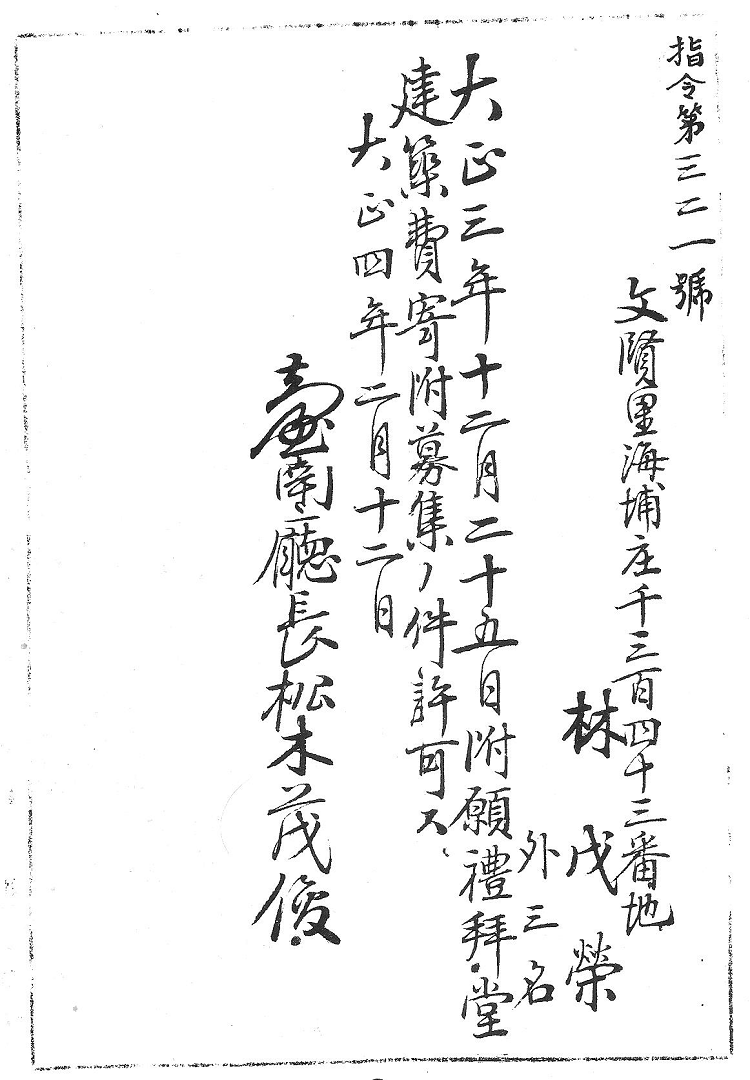 指令第三二一號
文賢里海埔庄千三百四十三番地
林戊榮
外三名
大正三年十二月二十五日附願禮拜堂
建築費寄附募集ノ件許可ス
大正四年二月十二日
臺南廳長松木茂俊